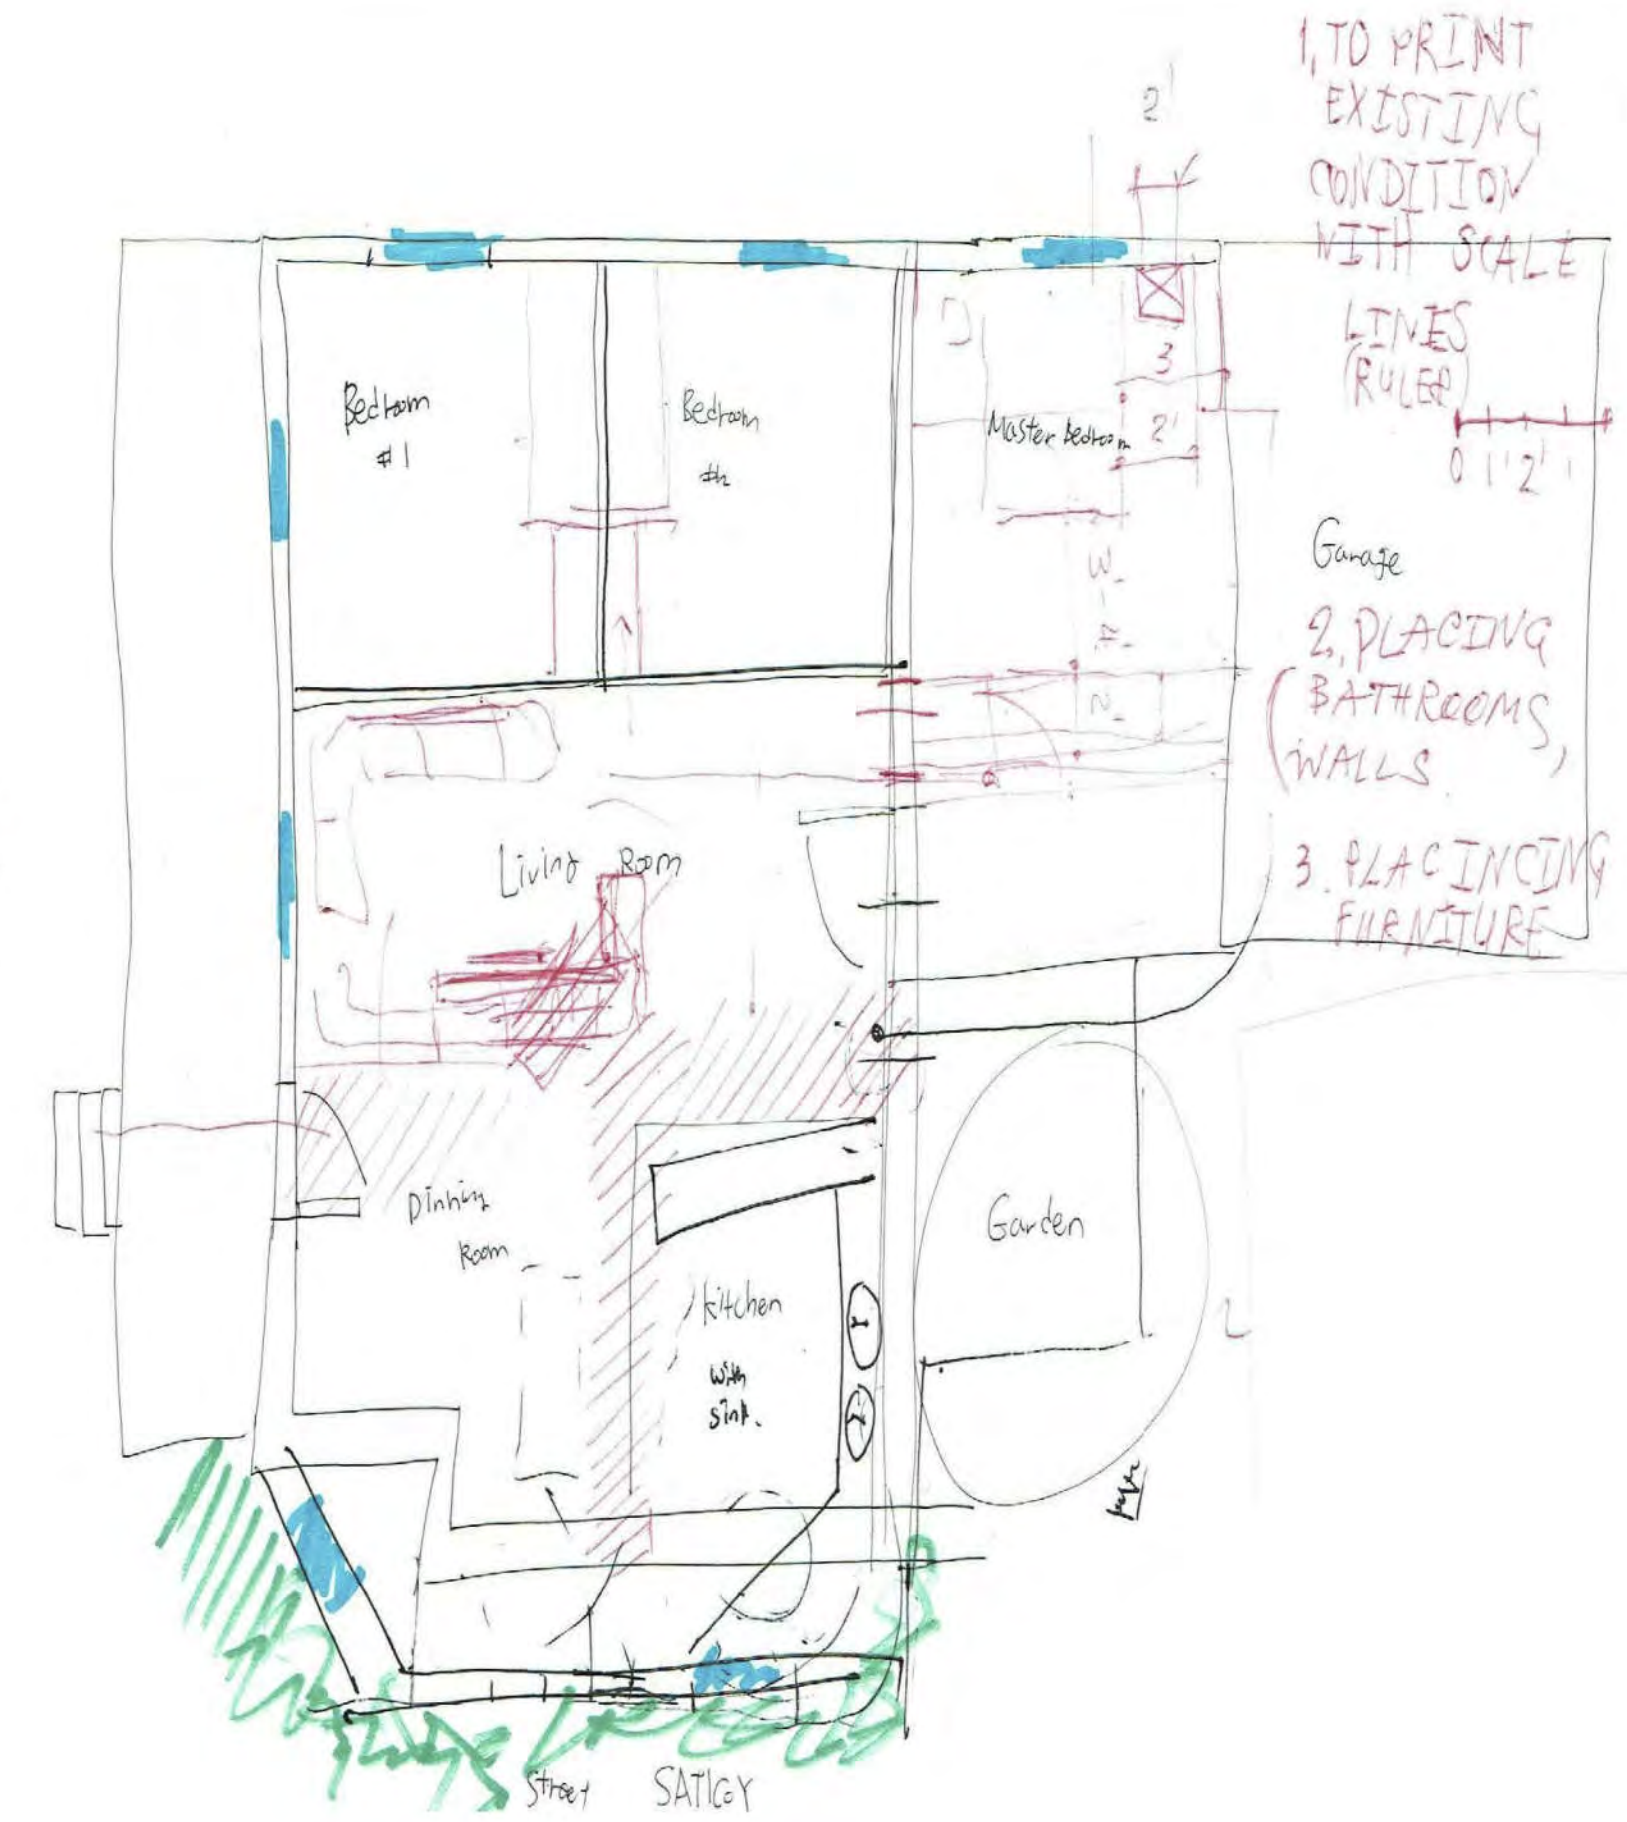 1, TO PRINT
EXISTING
CONDITION
WITH SCALE
LINES
(RULER)
0 1' 2' 1
2'
3
2'
Bedroom
#1
Bedroom
Master Bedroom
Garage
3'-4'
2'
2, PLACING
(BATHROOMS,
WALLS
Living Room
3. PLACINCING
FURNITURE
Dinning
Room
Garden
Kitchen
with
sink.
Street SATICOY